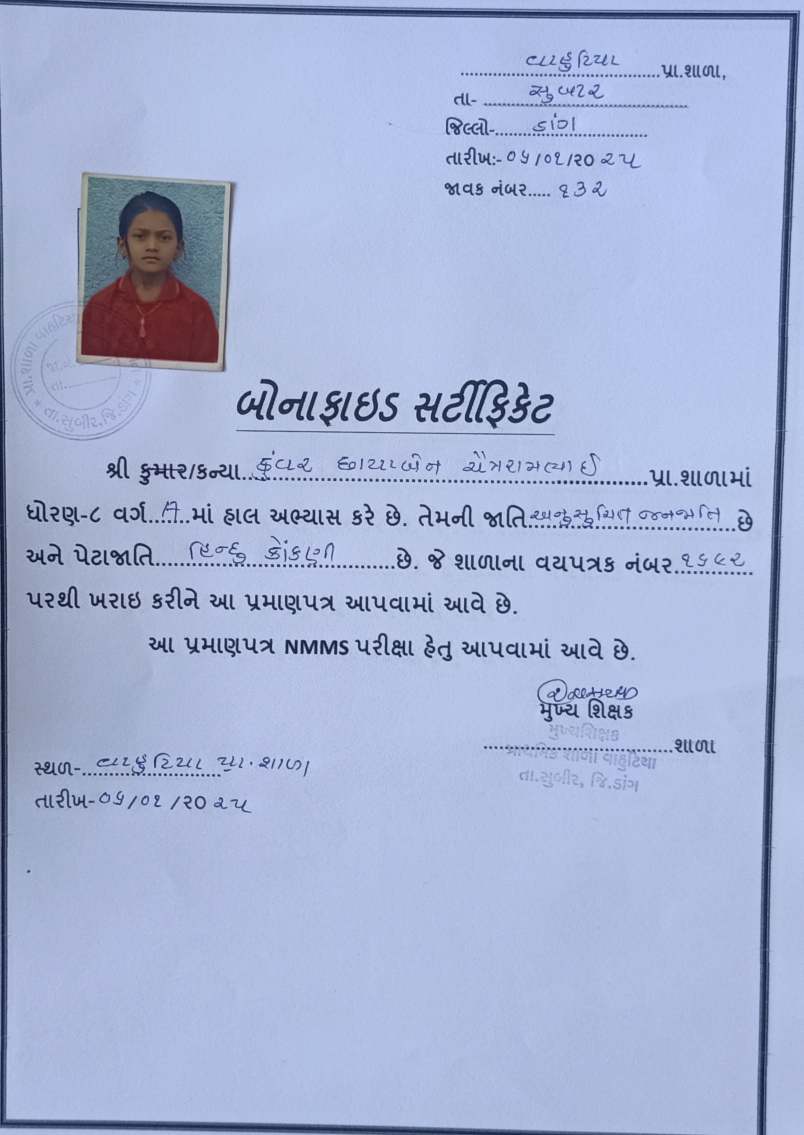 વાહુટિયા પ્રા.શાળા,
તા- સુબીર
જિલ્લો- ડાંગ
તારીખ:- ૦૫/૦૨/૨૦૨૫
જાવક નંબર..... ૧૩૨
બોનાફાઇડ સર્ટીફિકેટ
શ્રી કુમાર/કન્યા કુંવર ચૈત્રામભાઈ પ્રા.શાળામાં
ધોરણ-૮ વર્ગ માં હાલ અભ્યાસ કરે છે. તેમની જાતિ અનુસુચિત જનજાતિ છે
અને પેટાજાતિ હિન્દુ કોંકણી છે. જે શાળાના વયપત્રક નંબર
પરથી ખરાઇ કરીને આ પ્રમાણપત્ર આપવામાં આવે છે.
આ પ્રમાણપત્ર NMMS પરીક્ષા હેતુ આપવામાં આવે છે.
મુખ્ય શિક્ષક
મુખ્યશિક્ષક
શાળા
પ્રાથમિક શાળા વાહુટિયા
તા.સુબીર, જિ.ડાંગ
સ્થળ- વાહુટિયા પ્રા.શાળા
તારીખ-૦૫/૦૨/૨૦૨૫
પ્રા.શાળા વાહુટિયા
તા.સુબીર, જિ.ડાંગ